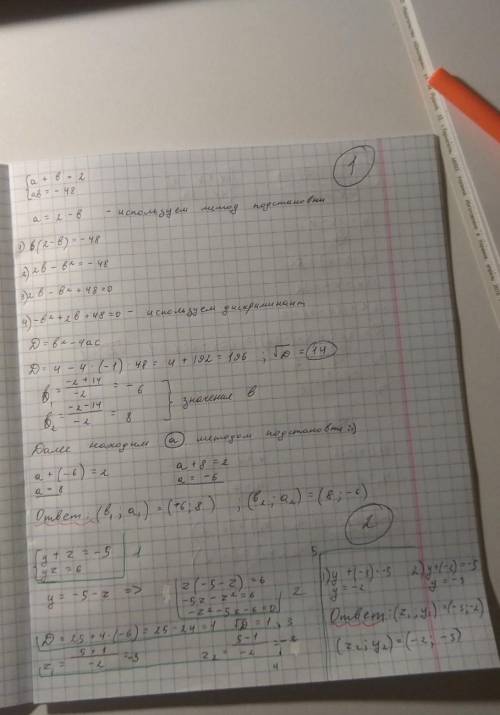 1
{a + b = 2
{ab = -48
a = 2 - b - используем метод подстановки
1) b(2-b) = -48
2) 2b - b² = -48
3) 2b - b² + 48 = 0
4) -b² + 2b + 48 = 0 - используем дискриминант
D = b² - 4ac
D = 4 - 4 · (-1) · 48 = 4 + 192 = 196 ; √D = 14
b₁ = (-2+14)/-2 = -6
b₂ = (-2-14)/-2 = 8
} значения b
Далее находим a методом подстановки :)
a + (-6) = 2
a = 8
a + 8 = 2
a = -6
Ответ: (b₁ ; a₁) = (-6 ; 8) ; (b₂ ; a₂) = (8 ; -6)
2
{y + z = -5
{yz = 6
1
y = -5 - z =>
z(-5-z) = 6
-5z - z² = 6
-z² - 5z - 6 = 0
2
D = 25 + 4 · (-6) = 25 - 24 = 1 √D = 1
3
z₁ = (5+1)/-2 = -3
z₂ = (5-1)/-2 = -2
4
5
1) y + (-3) = -5
y = -2
2) y + (-2) = -5
y = -3
Ответ: (z₁ ; y₁) = (-3 ; -2)
(z₂ ; y₂) = (-2 ; -3)